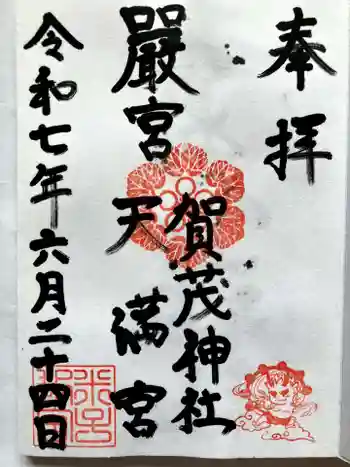 奉拝
賀茂神社
嚴宮
天満宮
令和七年六月二十四日